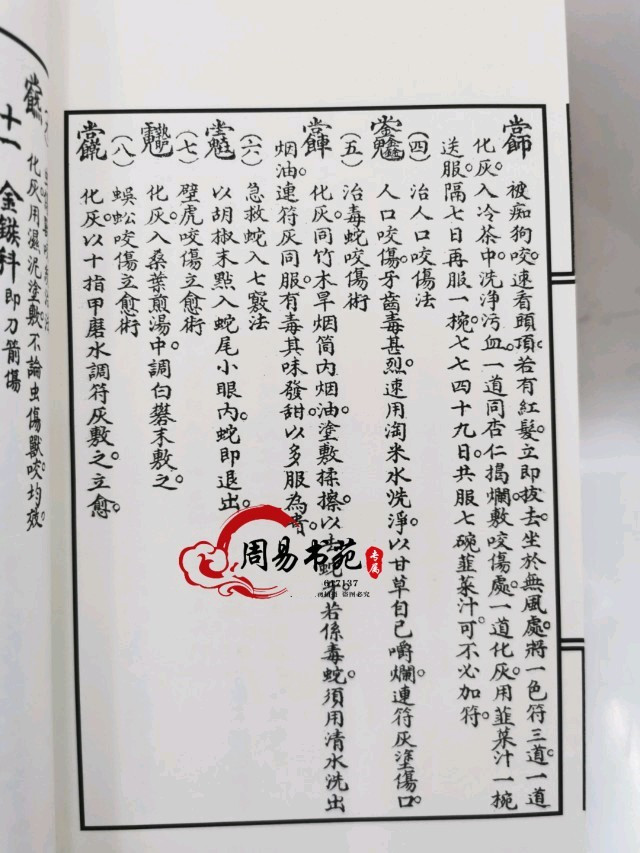 被痴狗咬。速看頭頂。若有紅髮。立即拔去。坐於無風處。將一色符三道。一道
化灰。入冷茶中。洗淨污血。一道同杏仁揭爛敷咬傷處。一道化灰。用韮菜汁一碗
送服。隔七日再服一椀。七七四十九日共服七碗韮菜汁可。不必加符。
(四) 治人口咬傷法
人口咬傷。牙齒毒甚烈。速用淘米水洗淨。以甘草自己嚼爛。連符灰塗傷口。
(五) 治毒蛇咬傷術
化灰。同竹木旱烟筒內烟油。塗敷揉擦。以去蛇牙。若係毒蛇。須用清水洗出
烟油。連符灰同服。有毒其味發甜。以多服為
(六) 急救蛇入七竅法
以胡椒末點入蛇尾小眼內。蛇即退出。
(七) 壁虎咬傷立愈術
化灰。入桑葉煎湯中。調白礬末敷之。
(八) 蜈蚣咬傷立愈術
化灰。以十指甲磨水調符灰敷之。立愈。
化灰用濕泥塗敷。不論虫傷獸咬均效。
十一 金鏃科 即刀箭傷
周易书苑
专属